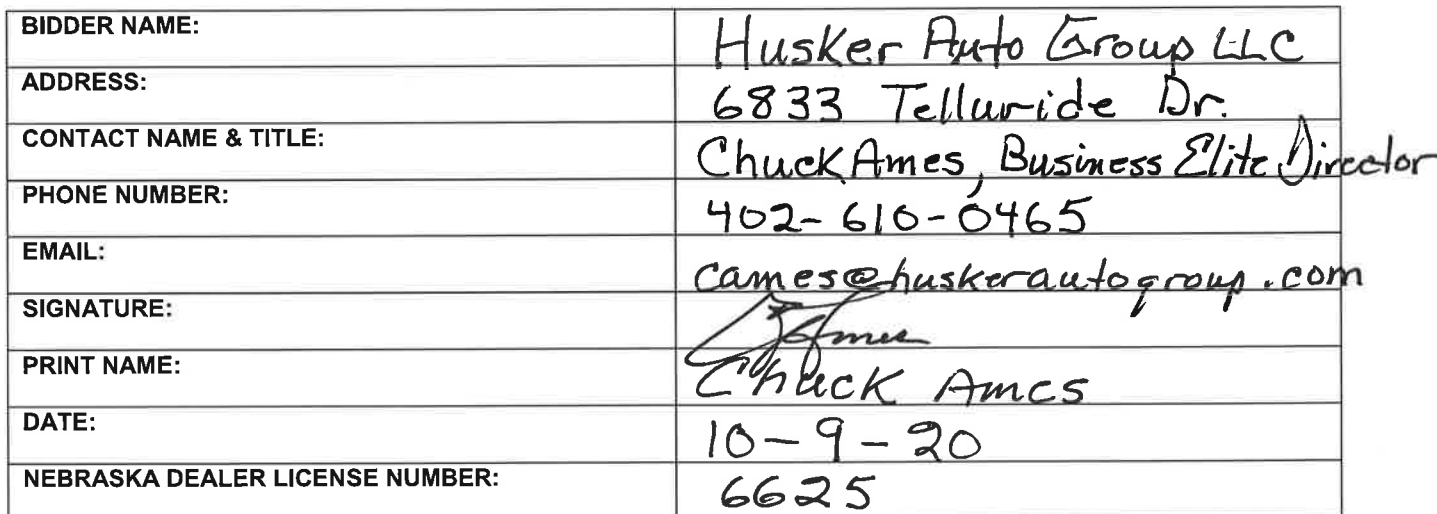 BIDDER NAME: Husker Auto Group LLC
ADDRESS: 6833 Telluride Dr.
CONTACT NAME & TITLE: Chuck Ames, Business Elite Director
PHONE NUMBER: 402-610-0465
EMAIL: cames@huskerautogroup.com
SIGNATURE: Ames
PRINT NAME: Chuck Ames
DATE: 10-9-20
NEBRASKA DEALER LICENSE NUMBER: 6625